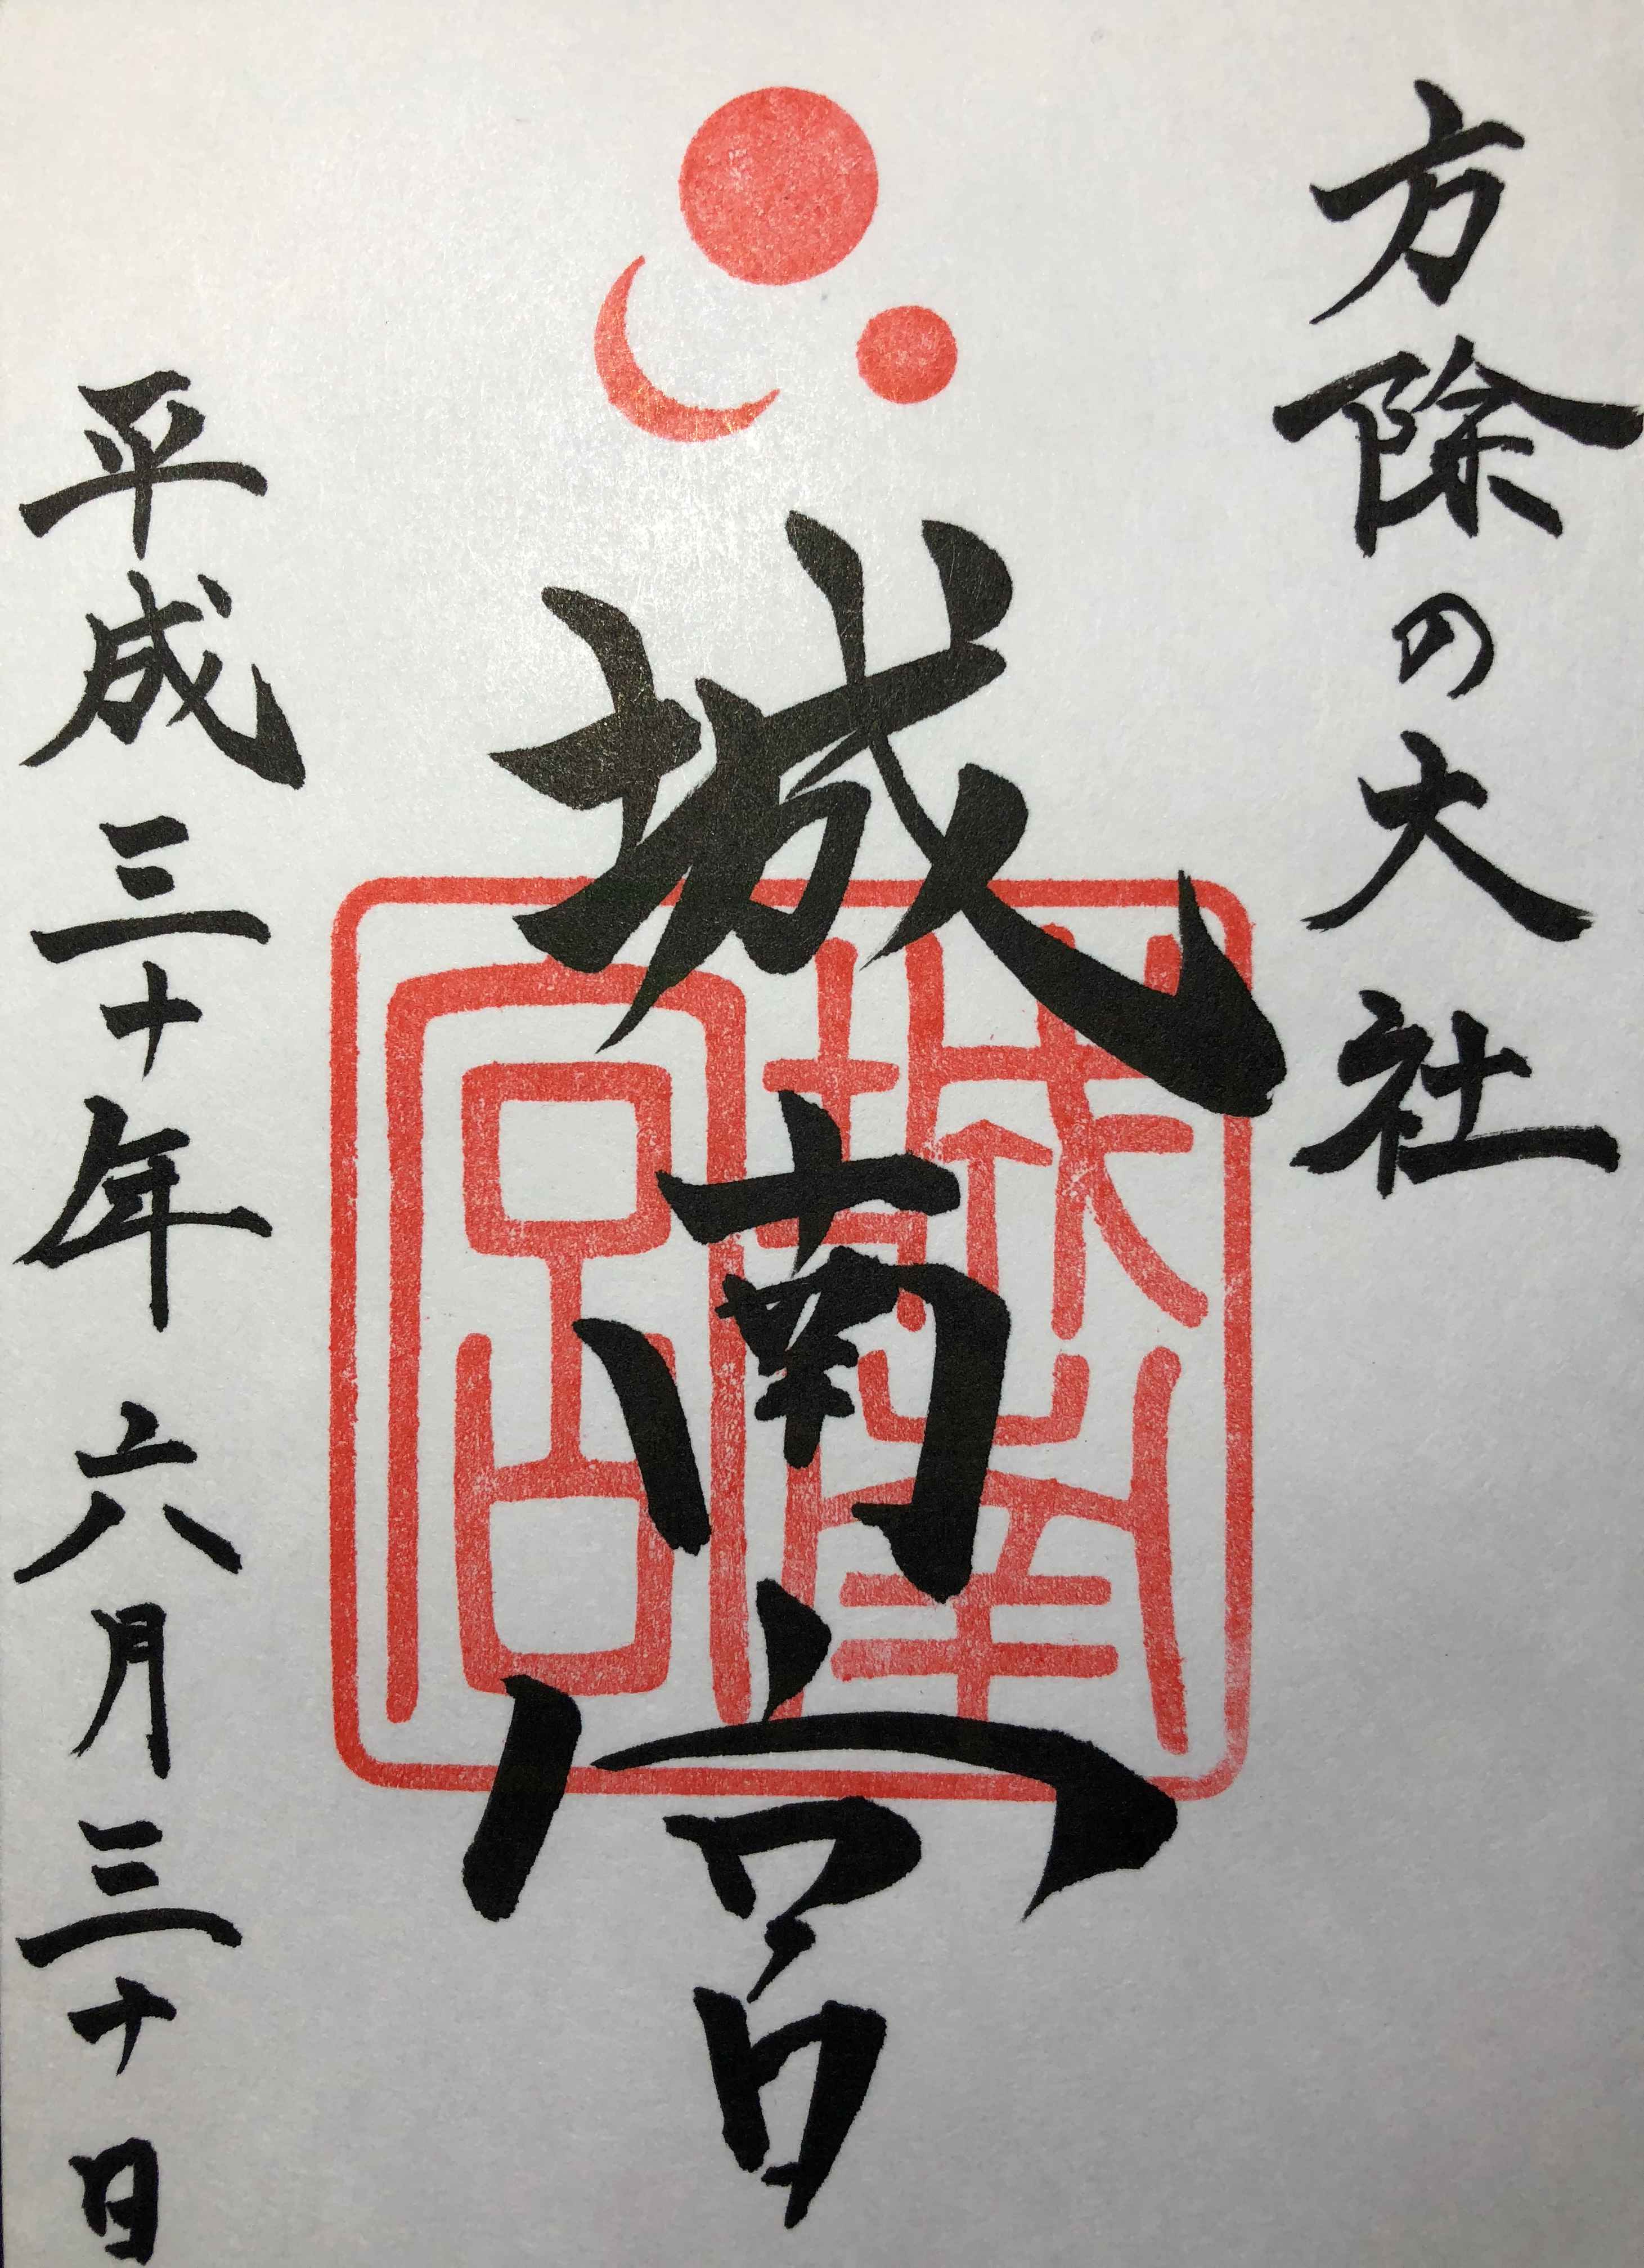 方除の大社
城南宮
城南宮
平成三十年六月三十日